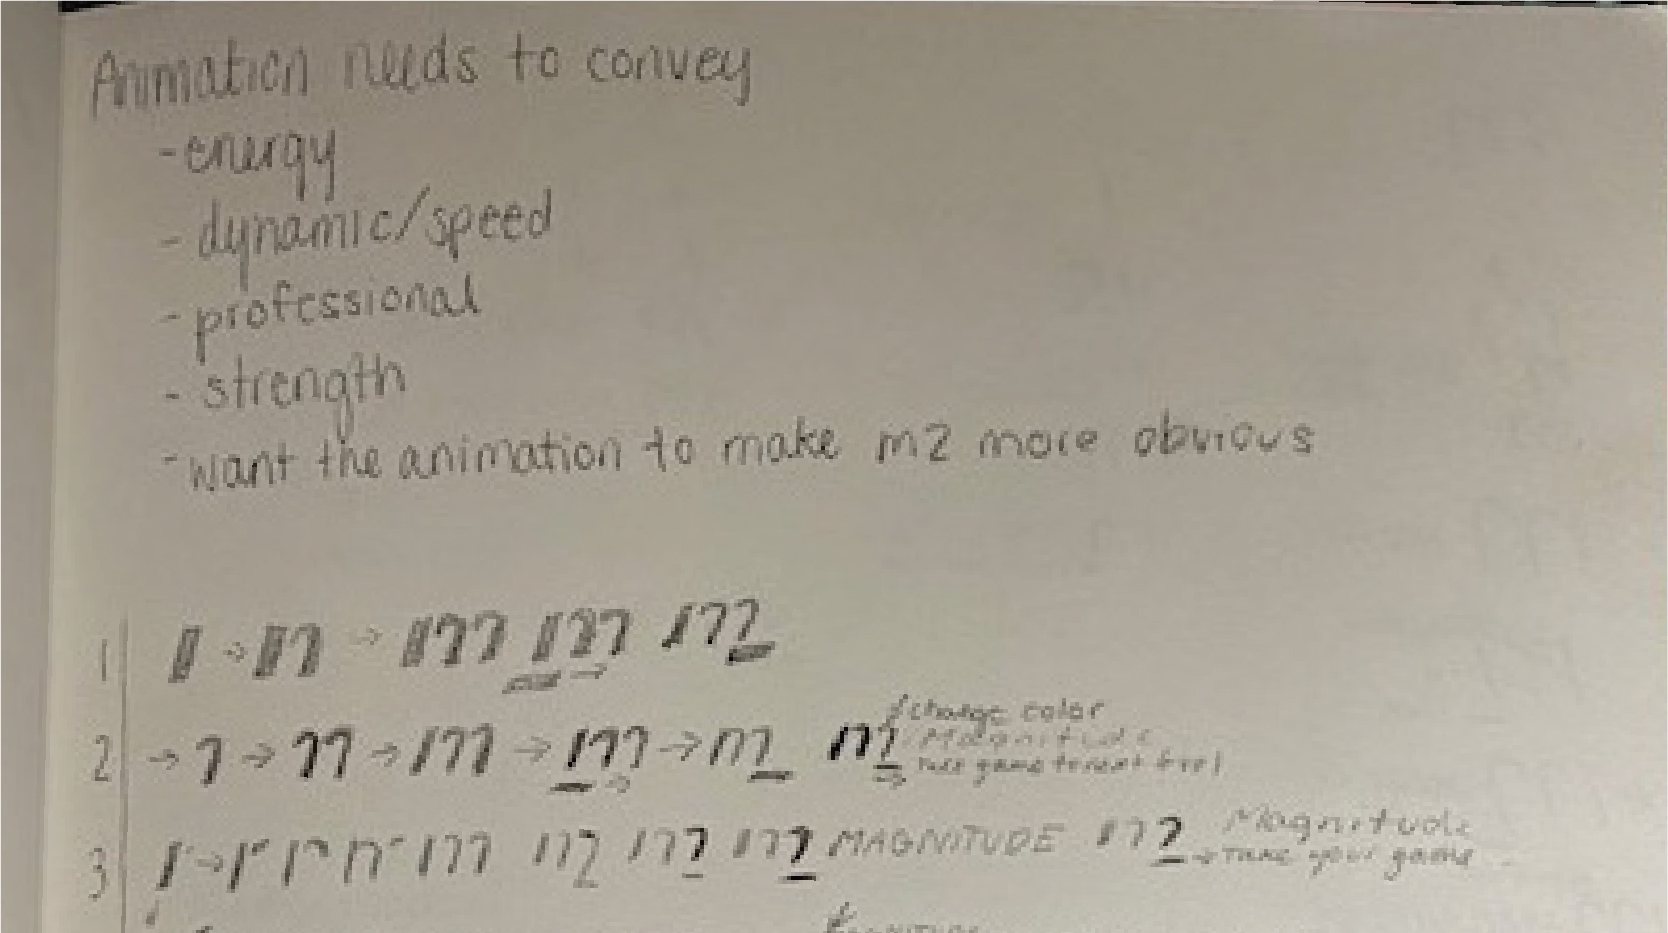 Animation needs to convey
- energy
- dynamic/speed
- professional
- strength
- want the animation to make m2 more obvious
1
2
change color
Magnitude
3 MAGNITUDE Magnitude
→ Take your game